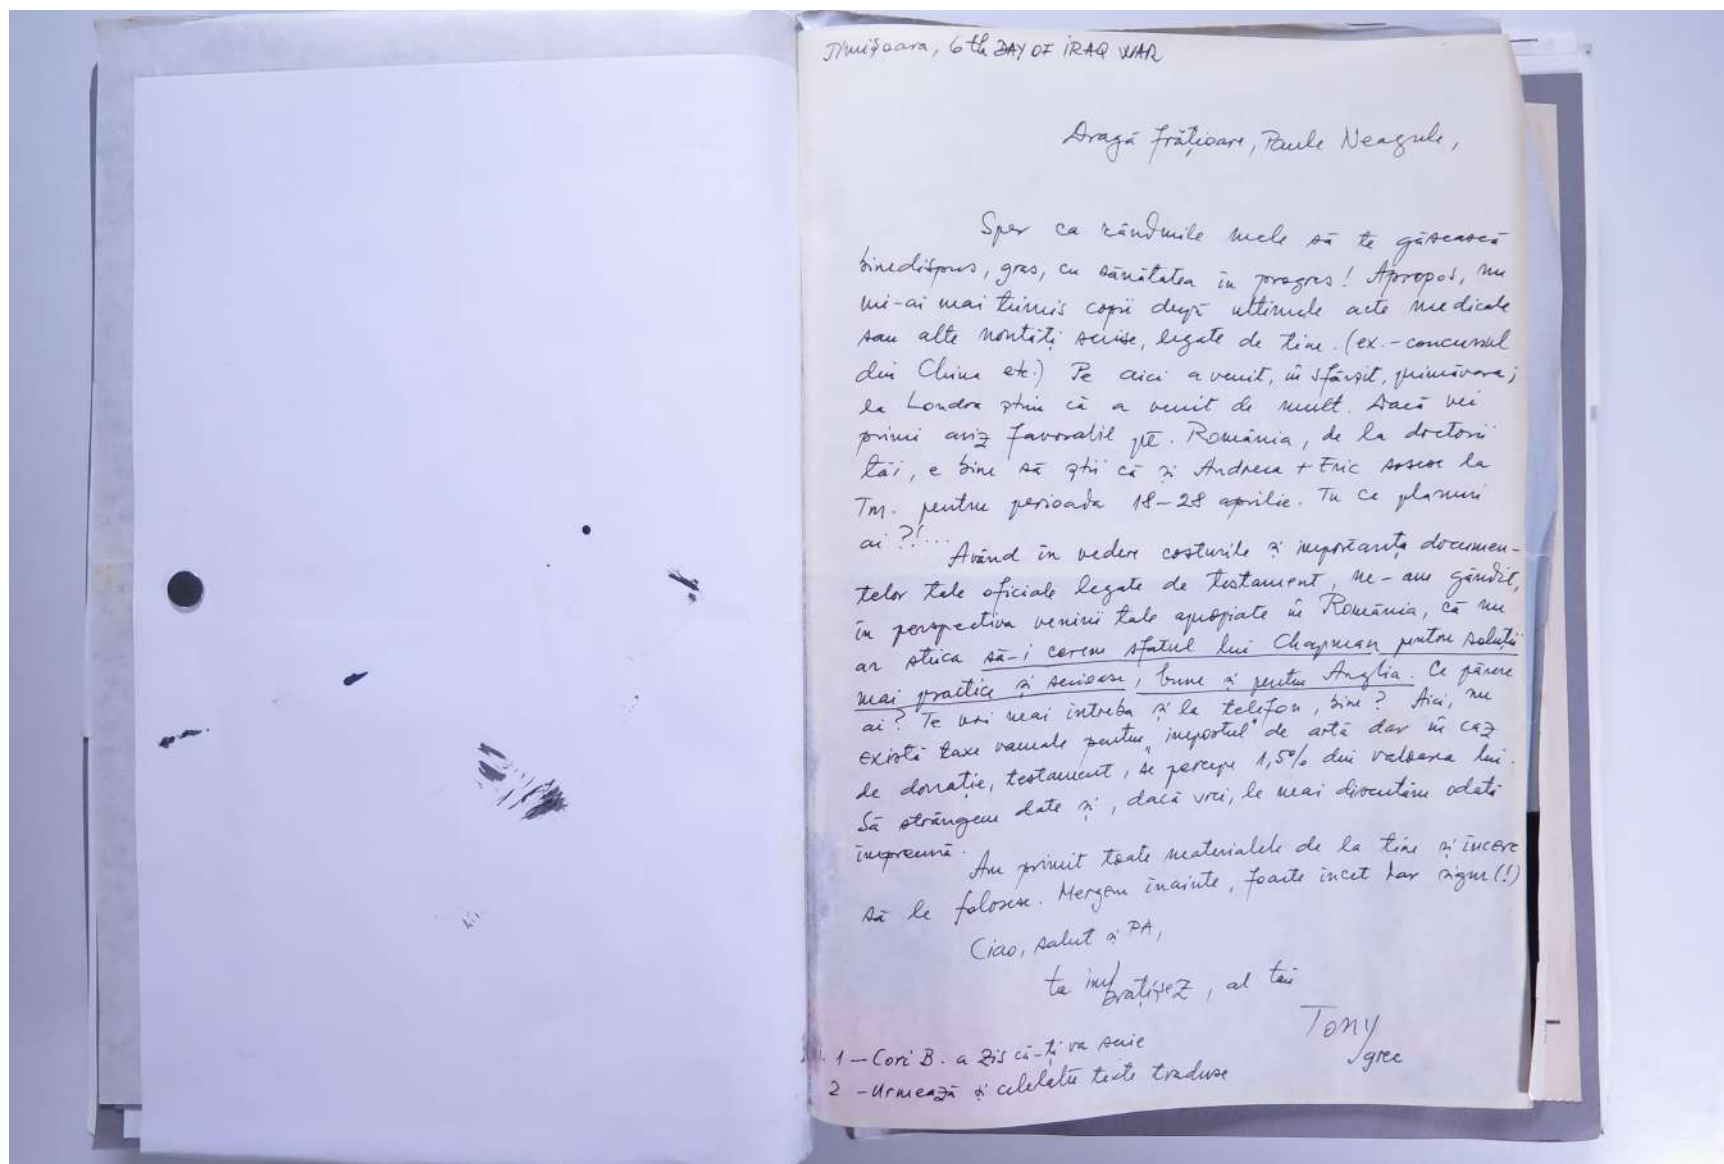 Timișoara, 6th DAY OF IRAQ WAR
Dragă frățioare, Paule Neagule,
Sper ca rândurile mele să te găsească
binedispus, gras, cu sănătatea în progres! Apropos, nu
mi-ai mai trimis copii după ultimele acte medicale
sau alte noutăți scrise, legate de tine. (ex. - concursul
din China etc.) Pe aici a venit, în sfârșit, primăvara;
la Londra știu că a venit de mult. Dacă vei
primi aviz favorabil pt. România, de la doctorii
tăi, e bine să știi că și Andreea + Eric sosesc la
Tm. pentru perioada 18-28 aprilie. Tu ce planuri
ai ?!...
Având în vedere costurile și importanța documen-
telor tale oficiale legate de testament, ne-am gândit,
în perspectiva venirii tale apropiate în România, că nu
ar strica să-i cerem sfatul lui Chapman pentru soluții
mai practice și serioase, bune și pentru Anglia. Ce părere
ai? Te voi mai întreba și la telefon, bine? Aici, nu
există taxe vamale pentru "importul" de artă dar în caz
de donație, testament, se percepe 1,5% din valoarea lui.
Să strângem date și, dacă vrei, le mai discutăm odată
împreună.
Am primit toate materialele de la tine și încerc
să le folosesc. Mergem înainte, foarte încet dar sigur (!)
Ciao, salut și PA,
te îmbrățișez, al tău
Tony
grec
1 - Cori B. a zis că-ți va scrie
2 - Urmează și celelalte texte traduse